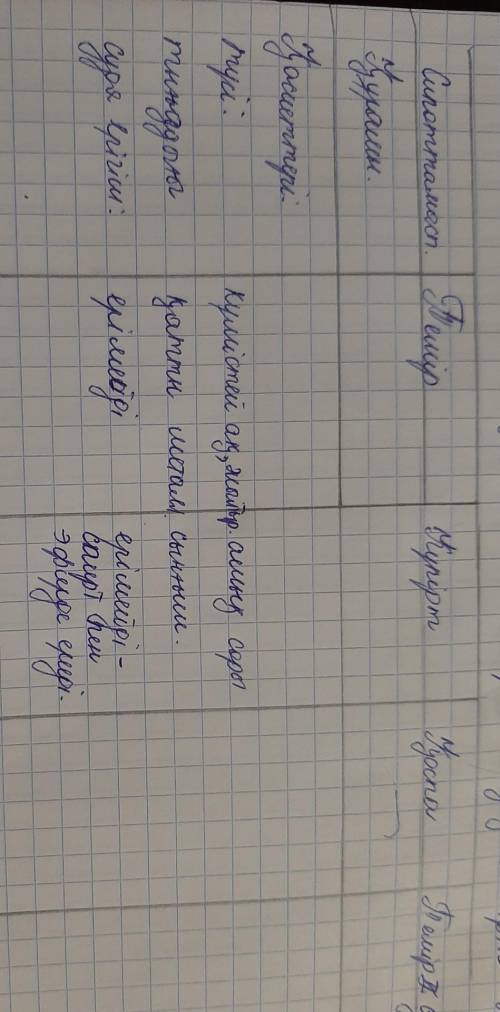 Сипаттамасы. Темір Күкірт Қоспа Темір II
Құрамы.
Қасиеттері.
түсі: күмістей ақ, жалтыр. ашық сары
тығыздығы қатты металл. сынғыш.
суда ерігіш: ерімейді ерімейді -
спирт пен
эфирде ериді.